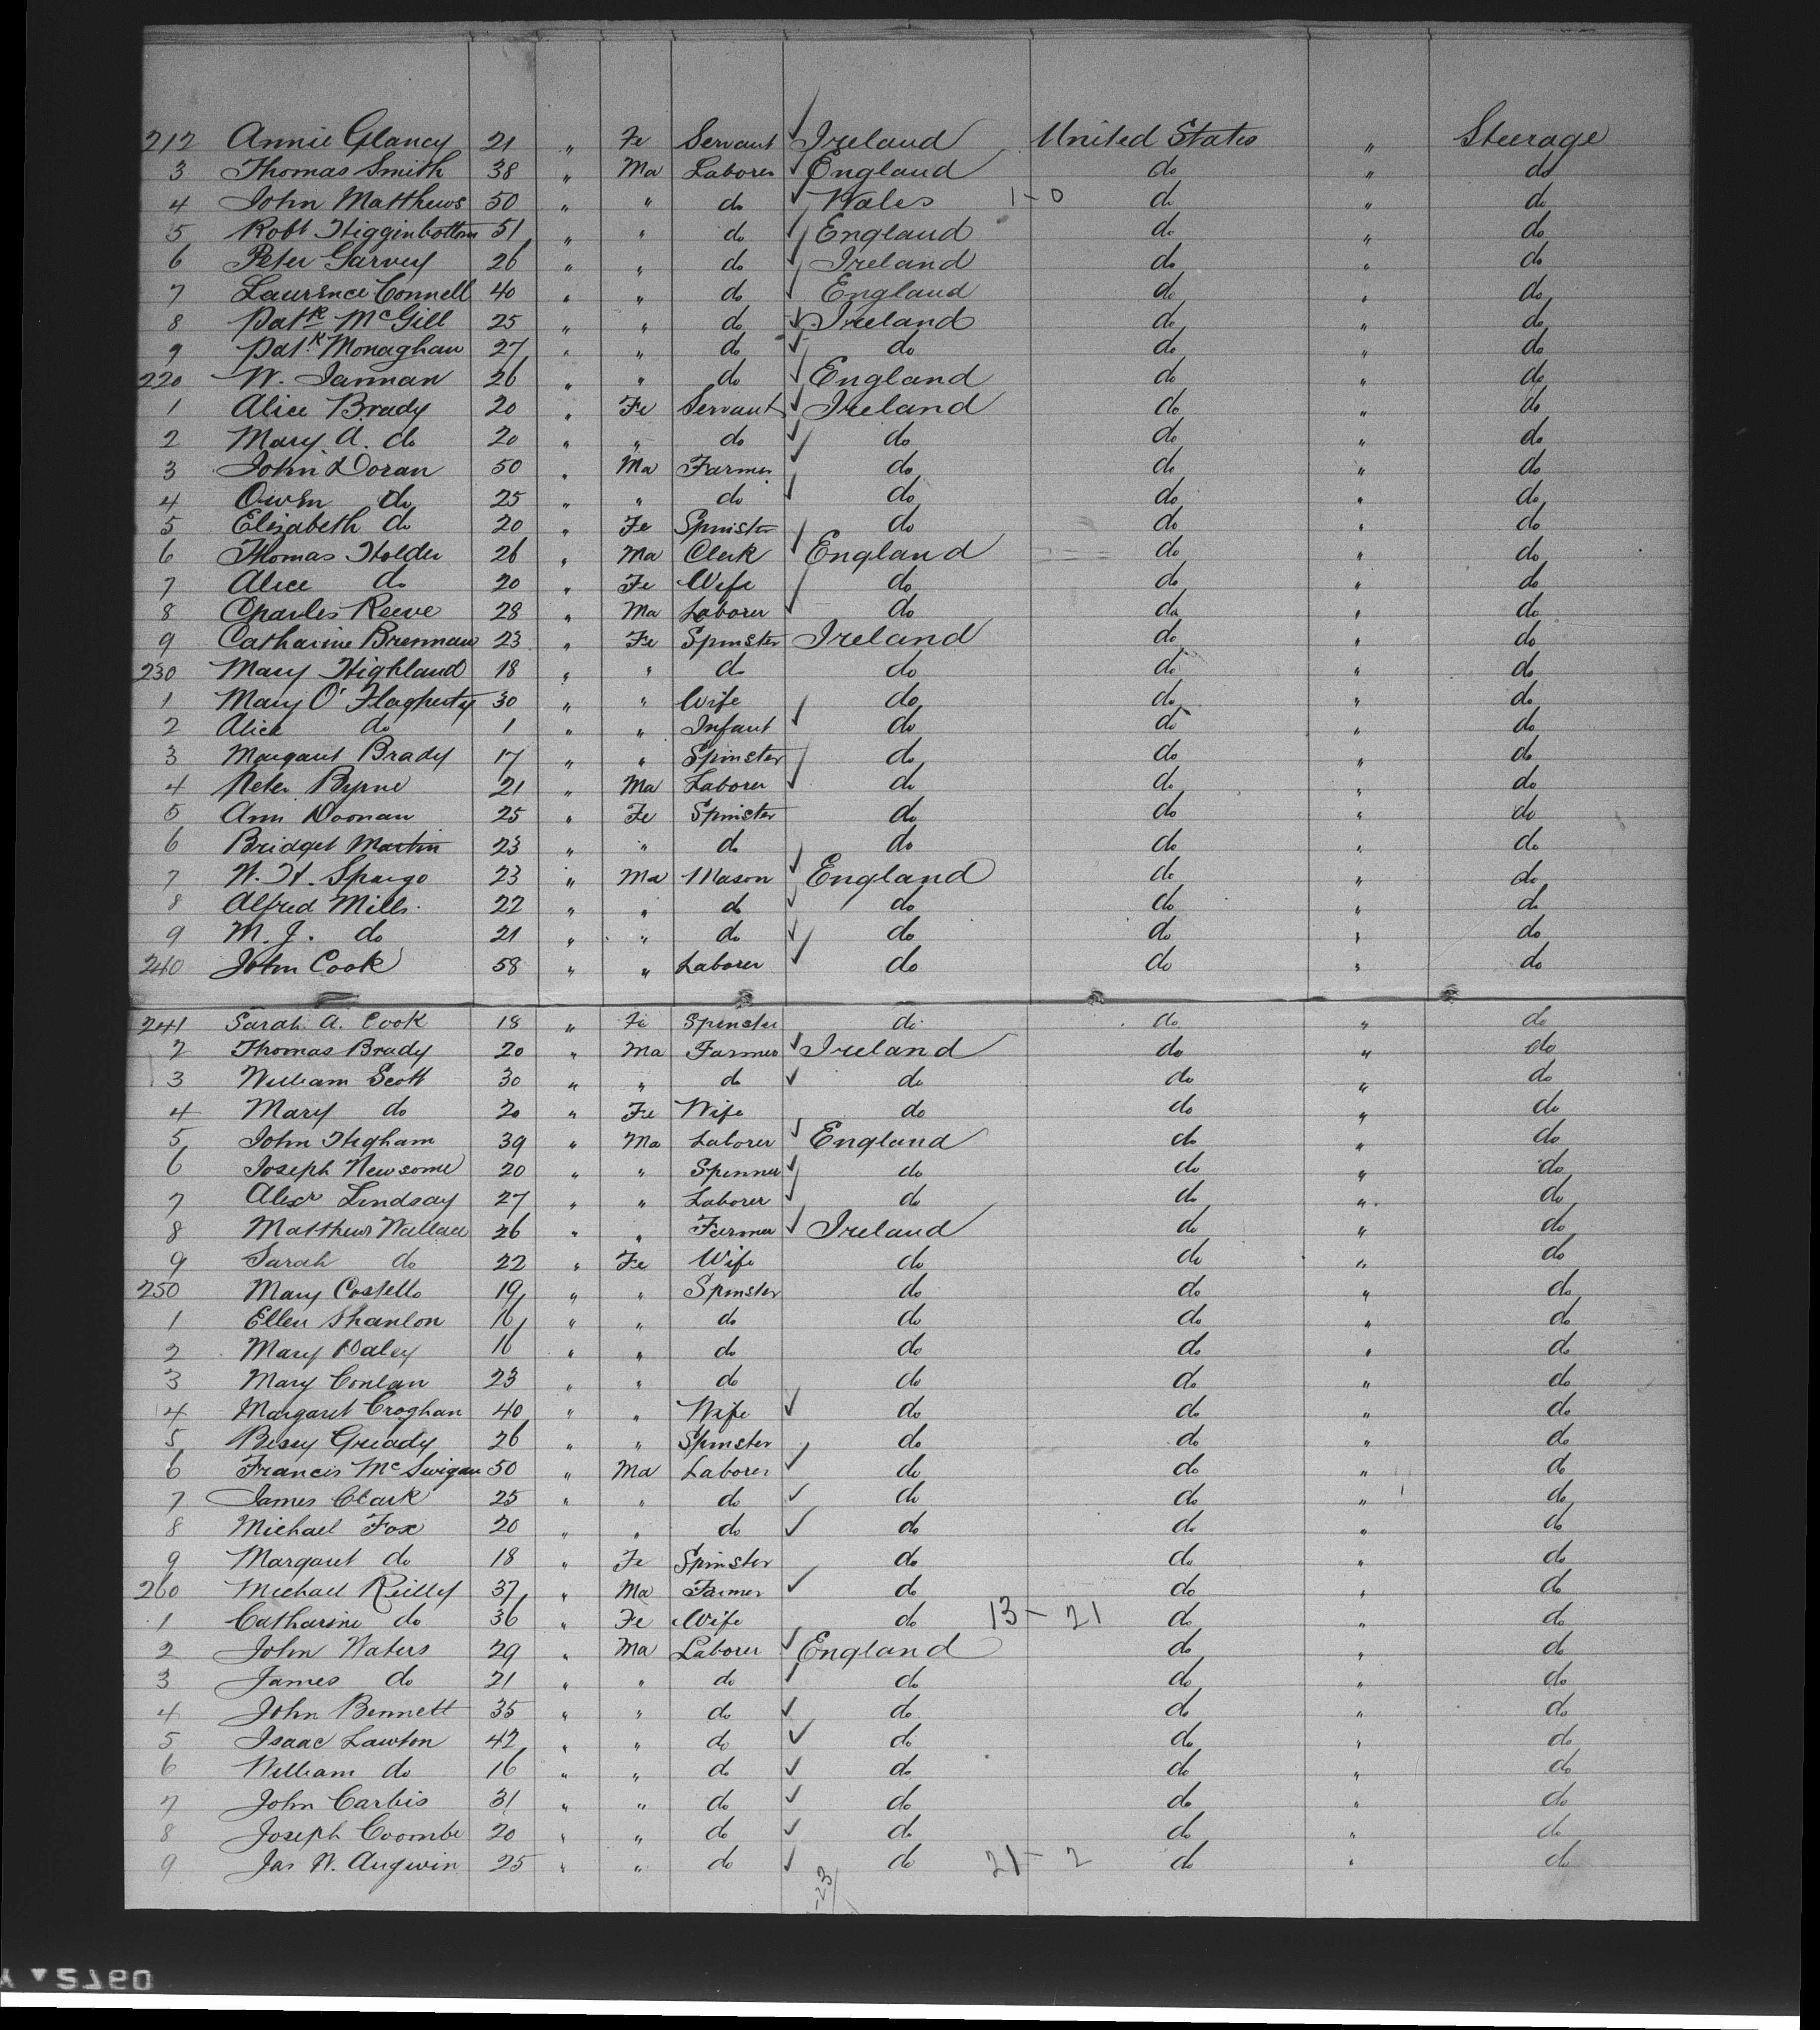 212 Annie Glancy 21 " Fe Servant Ireland United States " Steerage
3 Thomas Smith 38 " Ma Laborer England do " do
4 John Matthews 50 " " do Wales 1-0 do " do
5 Robt Higginbottom 51 " " do England do " do
6 Peter Garvey 26 " " do Ireland do " do
7 Laurence Connell 40 " " do England do " do
8 Patk McGill 25 " " do Ireland do " do
9 Patk Monaghan 27 " " do do do " do
220 W. Jannan 26 " " do England do " do
1 Alice Brady 20 " Fe Servant Ireland do " do
2 Mary A. do 20 " " do do do " do
3 John Doran 50 " Ma Farmer do do " do
4 Owen do 25 " " do do do " do
5 Elizabeth do 20 " Fe Spinster do do " do
6 Thomas Holder 26 " Ma Clerk England do " do
7 Alice do 20 " Fe Wife do do " do
8 Charles Reeve 28 " Ma Laborer do do " do
9 Catharine Brennan 23 " Fe Spinster Ireland do " do
230 Mary Highland 18 " " do do do " do
1 Mary O'Flagherty 30 " " Wife do do " do
2 Alice do 1 " " Infant do do " do
3 Margaret Brady 17 " " Spinster do do " do
4 Peter Byrne 21 " Ma Laborer do do " do
5 Ann Noonan 25 " Fe Spinster do do " do
6 Bridget Martin 23 " " do do do " do
7 W. H. Spargo 23 " Ma Mason England do " do
8 Alfred Mills 22 " " do do do " do
9 M. J. do 21 " " do do do " do
240 John Cook 58 " " Laborer do do " do
241 Sarah A. Cook 18 " Fe Spinster do do " do
2 Thomas Brady 20 " Ma Farmer Ireland do " do
3 William Scott 30 " " do do do " do
4 Mary do 20 " Fe Wife do do " do
5 John Higham 39 " Ma Laborer England do " do
6 Joseph Newsome 20 " " Spinner do do " do
7 Alexr Lindsay 27 " " Laborer do do " do
8 Matthew Wallace 26 " " Farmer Ireland do " do
9 Sarah do 22 " Fe Wife do do " do
250 Mary Costello 19 " " Spinster do do " do
1 Ellen Shanlon 16 " " do do do " do
2 Mary Daley 16 " " do do do " do
3 Mary Conlan 23 " " do do do " do
4 Margaret Croghan 40 " " Wife do do " do
5 Bessy Gready 26 " " Spinster do do " do
6 Francis McSwigan 50 " Ma Laborer do do " do
7 James Clark 25 " " do do do " do
8 Michael Fox 20 " " do do do " do
9 Margaret do 18 " Fe Spinster do do " do
260 Michael Reilly 37 " Ma Farmer do do " do
1 Catharine do 36 " Fe Wife do 13-21 do " do
2 John Waters 29 " Ma Laborer England do " do
3 James do 21 " " do do do " do
4 John Bennett 35 " " do do do " do
5 Isaac Lawton 42 " " do do do " do
6 William do 16 " " do do do " do
7 John Carbis 31 " " do do do " do
8 Joseph Coombe 20 " " do do do " do
9 Jas W. Angwin 25 " " do do 21-2 do " do
-23